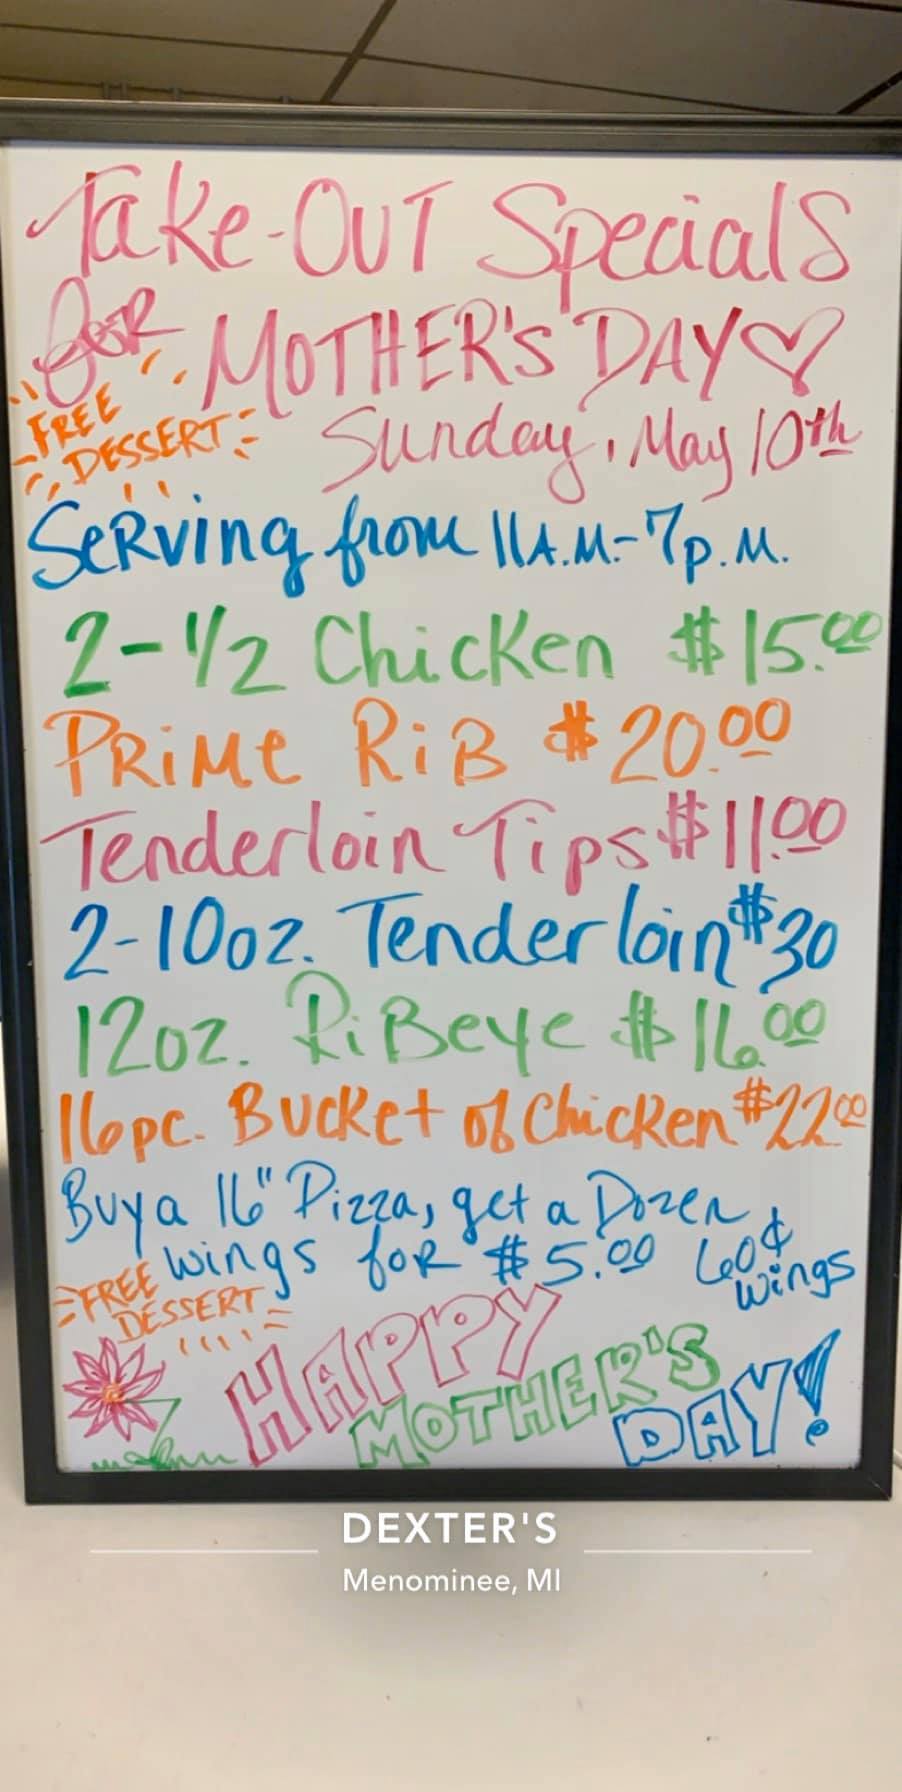 Take-Out Specials
FOR MOTHER'S DAY
FREE DESSERT
Sunday, May 10th
Serving from 11A.M.-7p.M.
2-1/2 Chicken $15.00
PRiMe RiB $20.00
Tenderloin Tips $11.00
2-10oz. Tenderloin $30
12oz. RiBeye $16.00
16pc. Bucket of Chicken $22.00
Buy a 16" Pizza, get a Dozen
wings for $5.00 60¢ wings
FREE DESSERT
HAPPY MOTHER'S DAY!
DEXTER'S
Menominee, MI